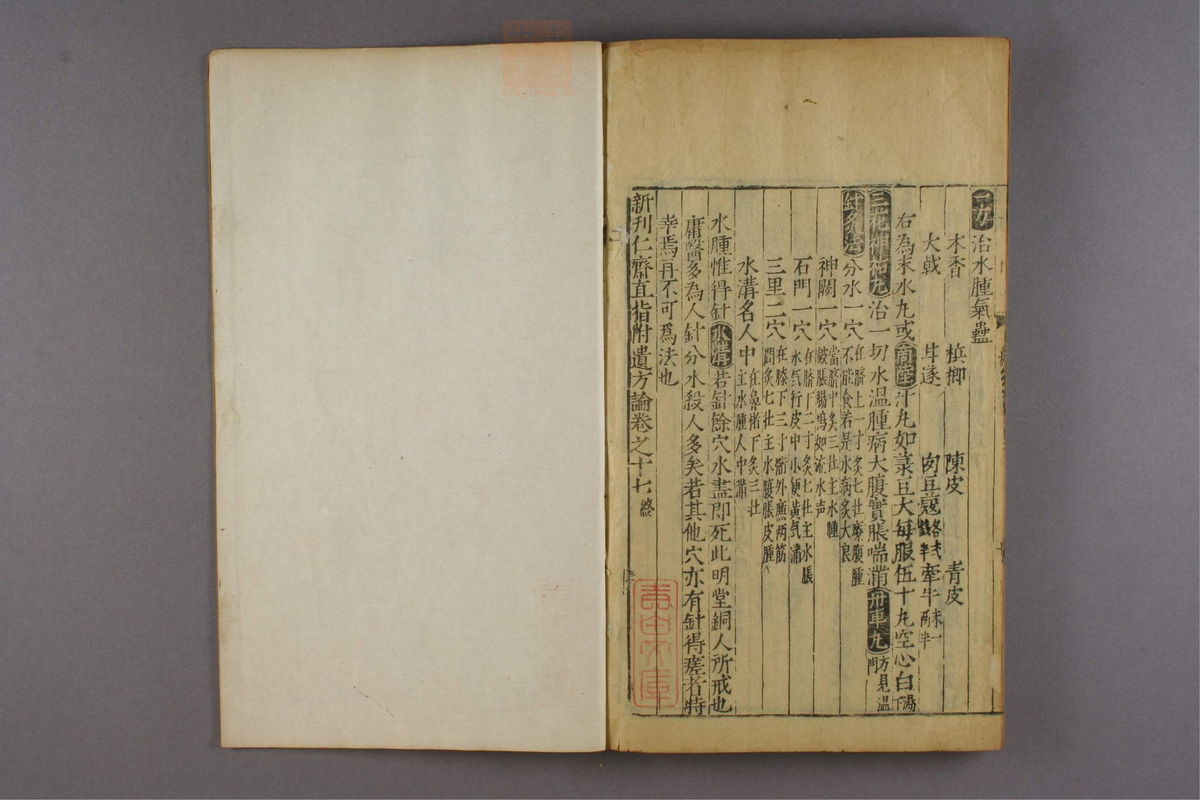 一方治水腫氣蠱
木香 檳榔 陳皮 青皮
大戟 甘遂 肉豆蔻各弐錢半牽牛末一兩半
右為末水丸或商陸汁丸如菉豆大每服伍十丸空心白湯下
三花神祐丸治一切水温腫病大腹實脹喘滿舟車丸方見温門
針灸法分水一穴在臍上一寸灸七壯療腹腫不能食若是水病灸大良
神闕一穴當臍中灸三壯主水腫皷脹腸鳴如流水声
石門一穴在臍下二寸灸七壯主水脹水气行皮中小便黃气滿
三里二穴在膝下三寸䯒外廉两筋間灸七壯主水腹脹皮腫
水溝名人中在鼻柱下灸三壯主水腫人中滿
水腫惟得針水溝若針餘穴水盡即死此明堂銅人所戒也
庸醫多為人針分水殺人多矣若其他穴亦有針得瘥者特
幸焉耳不可為法也
新刊仁齋直指附遺方論卷之十七終